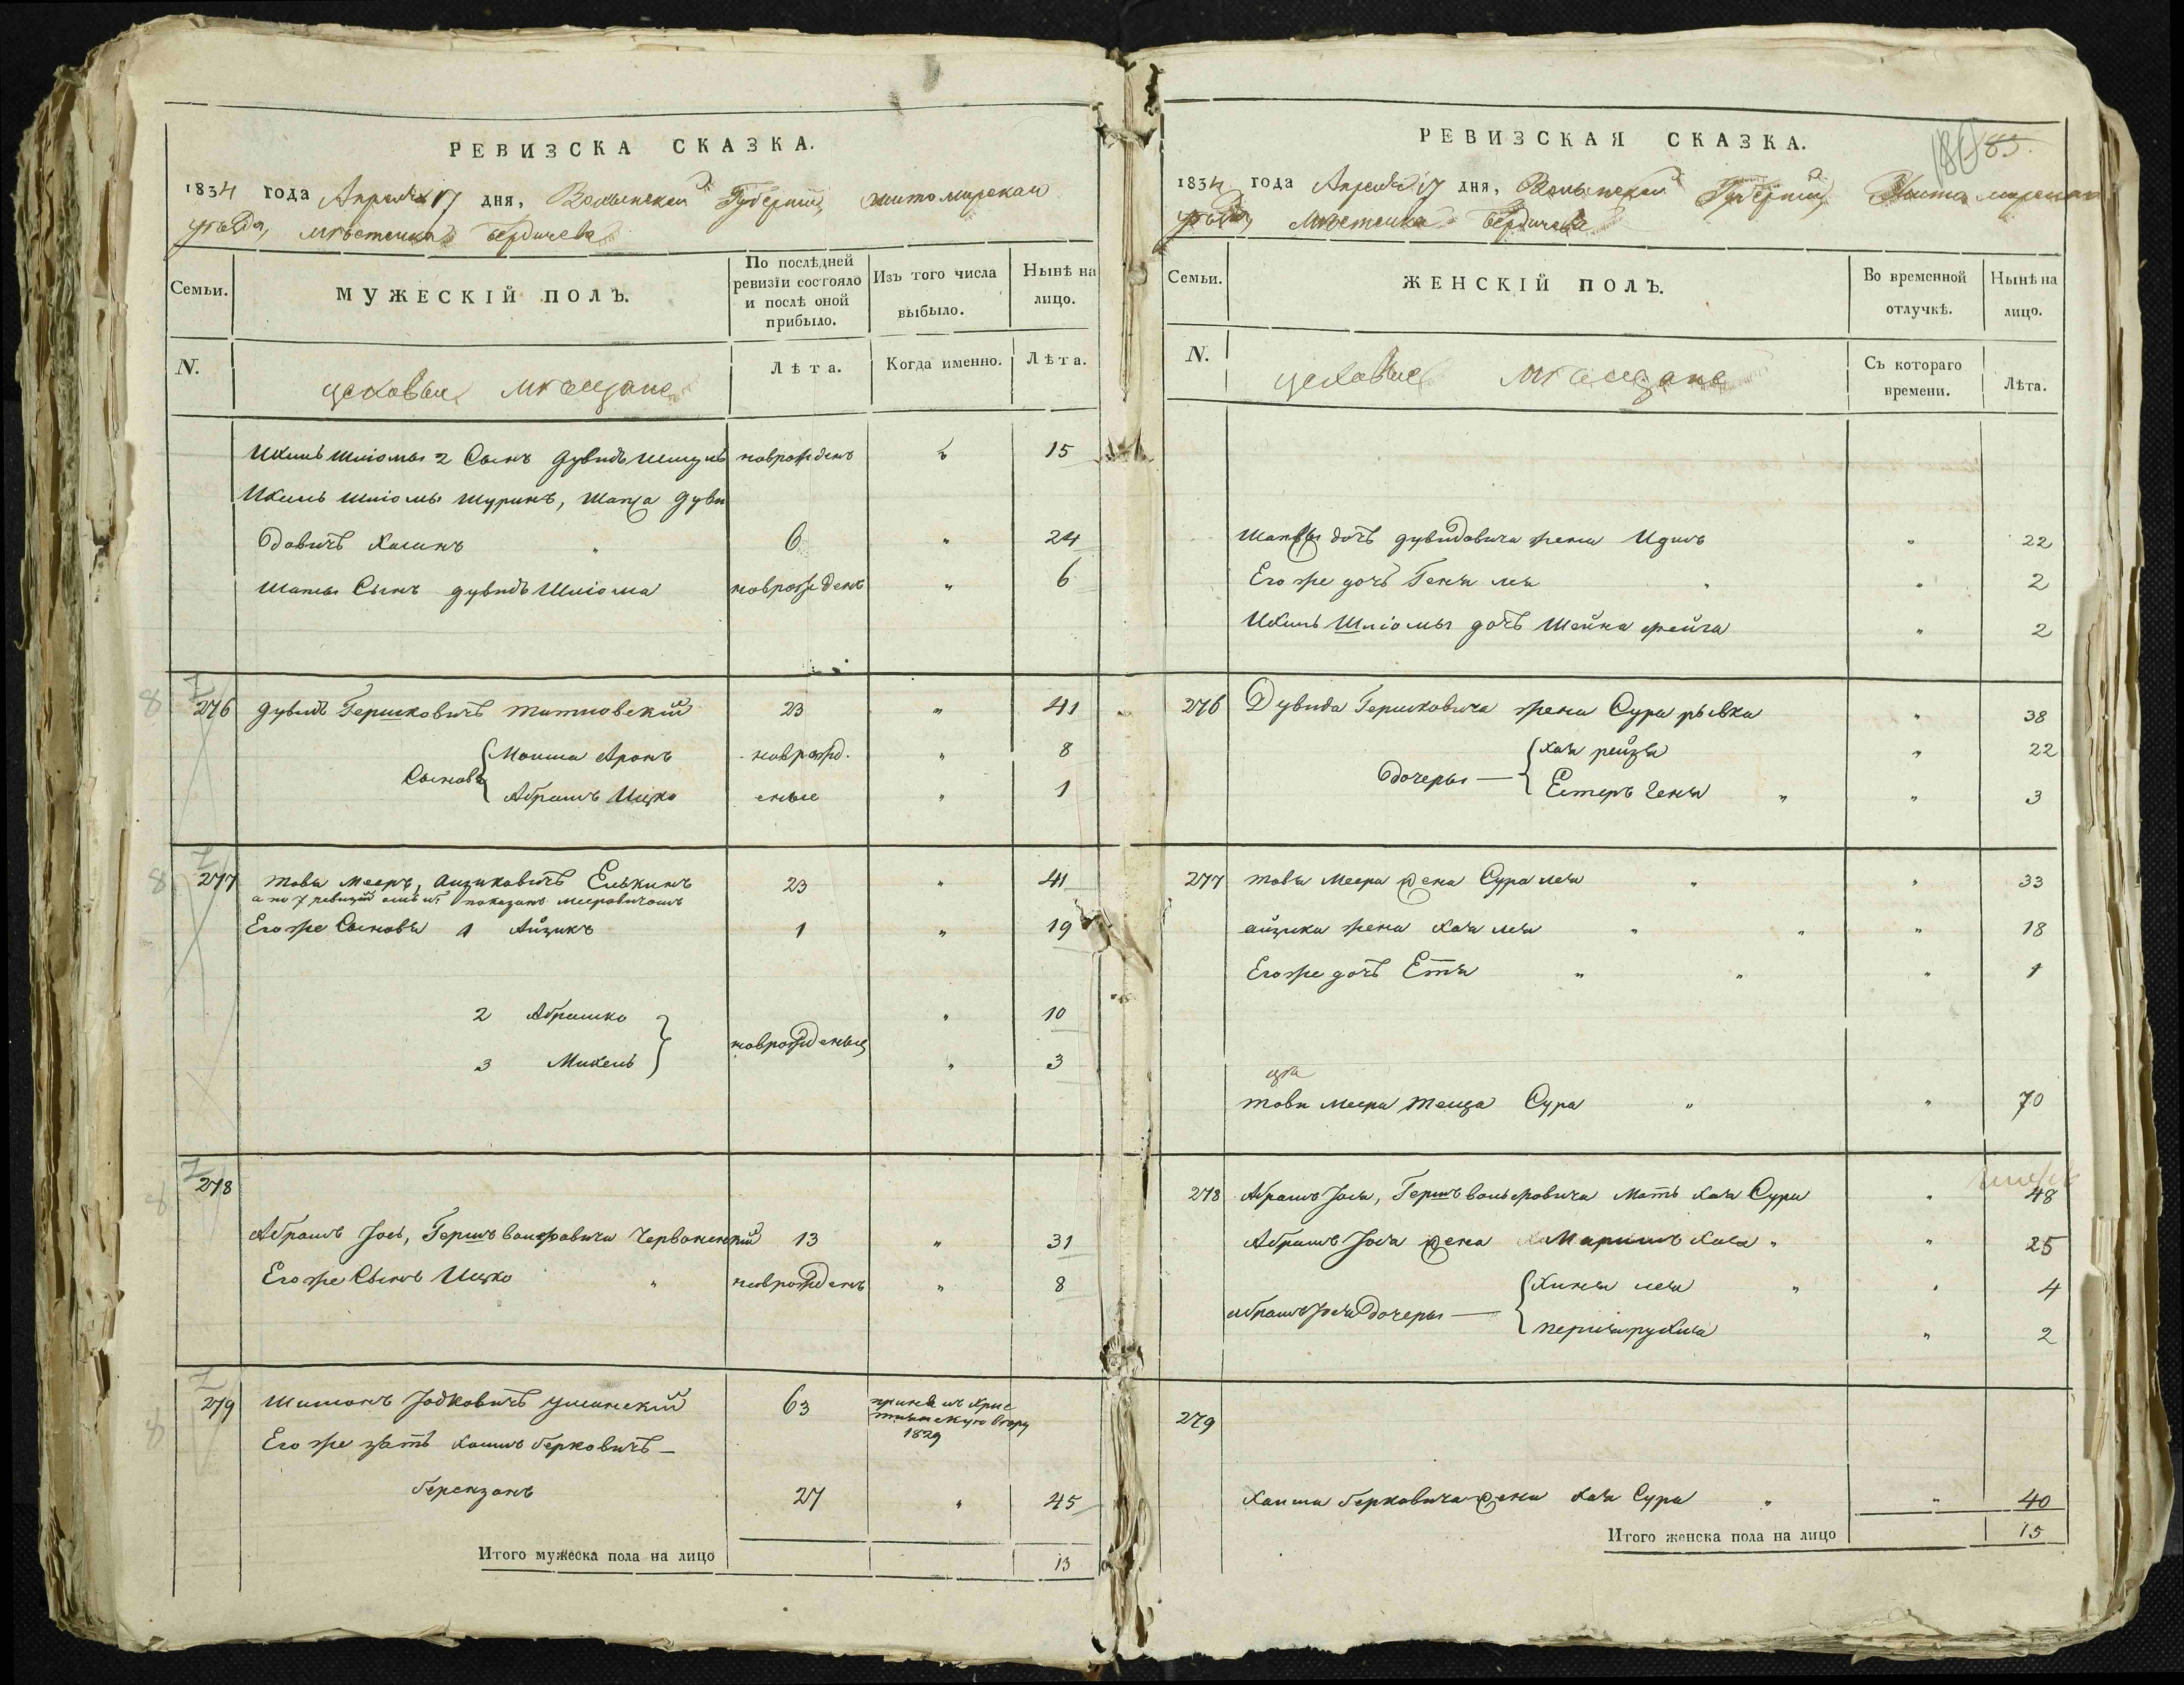 РЕВИЗСКА СКАЗКА.
1834 года Апреля 17 дня, Волынской Губернии, житомирскаи
уѣзда, мѣстечка бердичева
Семьи.
МУЖЕСКІЙ ПОЛЪ.
По послѣдней ревизіи состояло и послѣ оной прибыло.
Изъ того числа выбыло.
Нынѣ на лицо.
N.
цеховые мѣщане
Лѣта.
Когда именно.
Лѣта.
Ихиль Шліомы 2 Сынъ дувидъ новрожденъ 15
Ихиль Шліомы Шуринъ, Шапса дуви
довичъ 6 " 24
Шапсы Сынъ дувидъ Шліома новрожденъ " 6
276 дувидъ Гершковичъ 23 " 41
Сыновя { Мошка Аронъ новрожд. " 8
Абрамъ Ицко еные " 1
277 товя Мееръ, Аизиковичъ Елькинъ 23 " 41
а по 7 ревизіи показанъ мееровичомъ
Его же Сыновя 1 Айзикъ 1 " 19
2 Абрамко " 10
новрожденые
3 Михель " 3
278
Абрамъ Іось, Гершъ вольфовичи 13 " 31
Его же Сынъ Ицко " новрожденъ " 8
279 Шимонъ Іодковичъ Уманский 63 1829
Его же зять Хаимъ берковичъ –
берензонъ 27 " 45
Итого мужеска пола на лицо 13
РЕВИЗСКАЯ СКАЗКА.
186 185.
1834 года Апреля 17 дня, Волынской Губернии, Житомирскаи
уѣзда мѣстечка бердичева
Семьи.
ЖЕНСКІЙ ПОЛЪ.
Во временной отлучкѣ.
Нынѣ на лицо.
N.
цеховые мѣщане
Съ котораго времени.
Лѣта.
дувидовича жена Идиль " 22
Его же дочь Геня лея " " 2
Ихиль Шліомы дочь Шейна фейга " 2
276 Дувида Гершковича жена Сура рывка " 38
дочеры — { хая рейзя " 22
Естеръ Геня " " 3
277 товя Меера жена Сура лея " " 33
айзика жена хая лея " " " 18
Его же дочь Етя " " " 1
тови Меера теща Сура " " 70
278 Абрамъ Іося, Гершъ вольфовича Мать хая Сура " 48
Абрамъ Іося жена Маримъ хая " " 25
абрамъ Іося дочеры — { Хиня лея " " 4
перля рухля " 2
279
Хаима берковича жена хая Сура " " 40
Итого женска пола на лицо 15